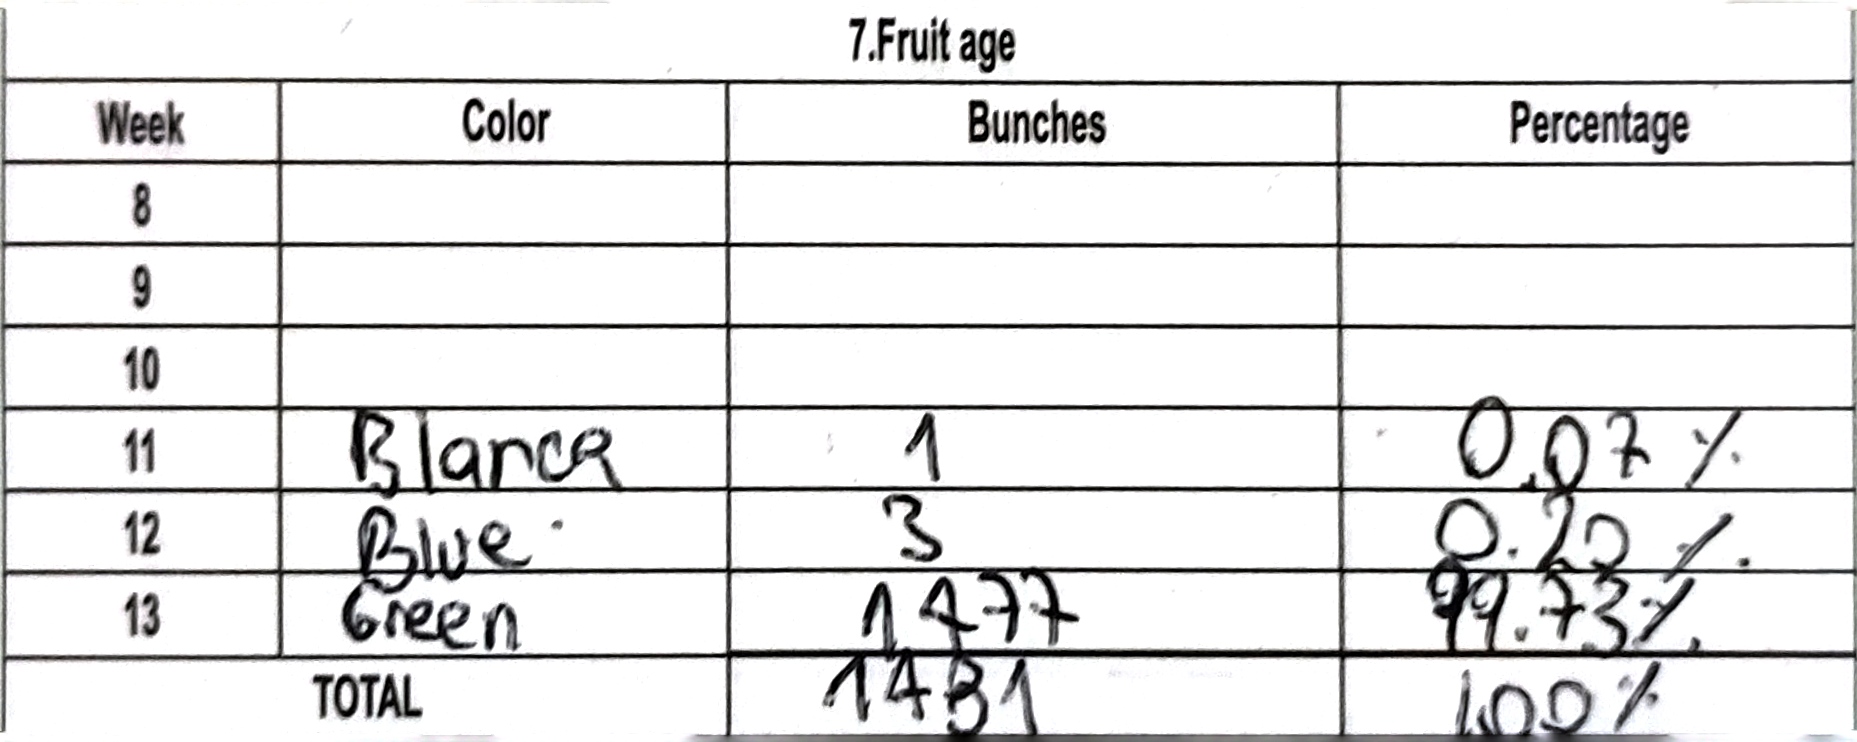 7.Fruit age
Week Color Bunches Percentage
8
9
10
11 Blanca 1 0.07 %
12 Blue 3 0.20 %.
13 Green 1477 99.73%.
TOTAL 1481 100%